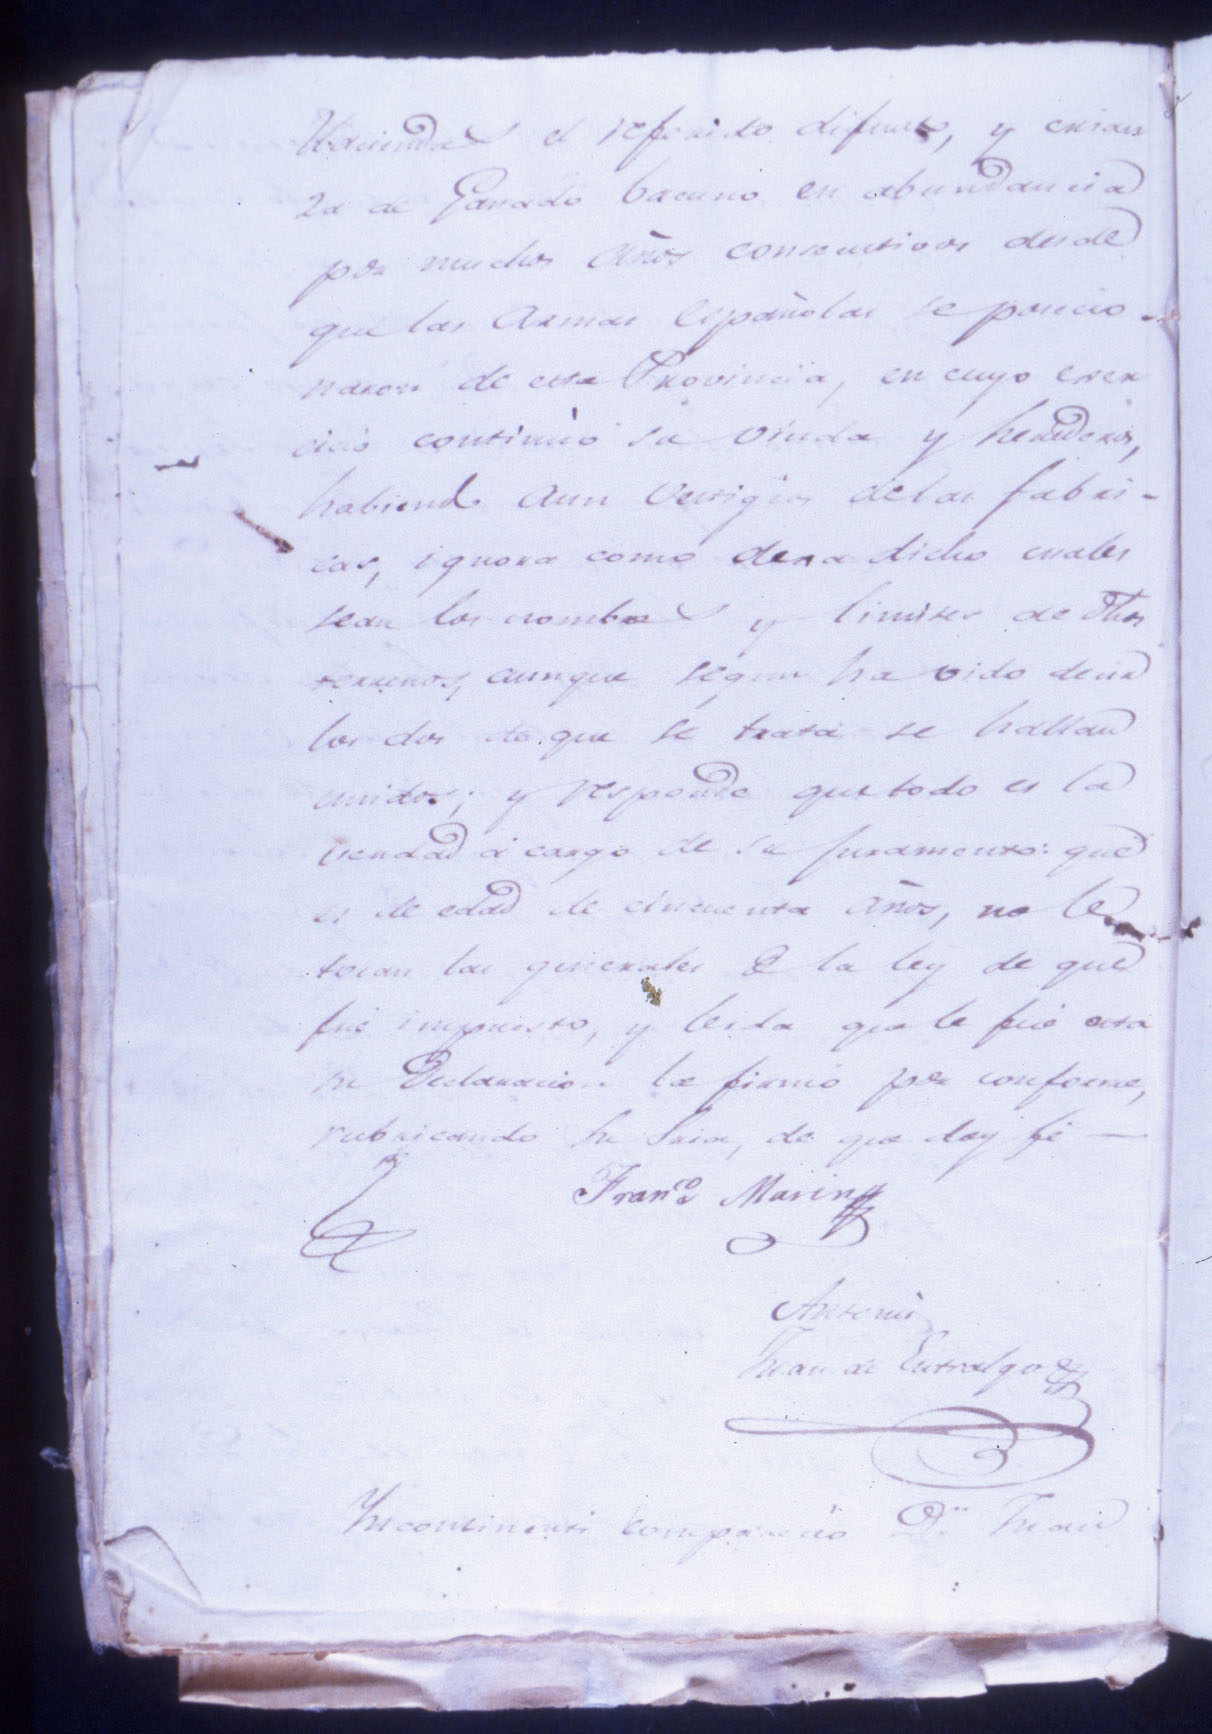 Haciendas el referido difunto, y crian
za de Ganado bacuno en abundancia
por muchos años consecutivos desde
que las Armas Españolas se posecio-
naron de esta Provincia, en cuyo exer
cicio continuó su viuda y herederos,
habiendo aun vestigios delas fabri-
cas, ignora como dexa dicho cuales
sean los nombres y limites de dhos
terrenos, aunque segun ha oido decir
los dos de que se trata se hallan
unidos; y responde que todo es la
verdad á cargo de su juramento: que
es de edad de cincuenta años, no le
tocan las generales de la ley de que
fué impuesto, y leida que le fué esta
su Declaracion la firmó por conforme,
rubricando su Sria, de que doy fé—
Franco Marin
Antemi
Juan de Entralgo
Incontinenti comparecio Dn Juan